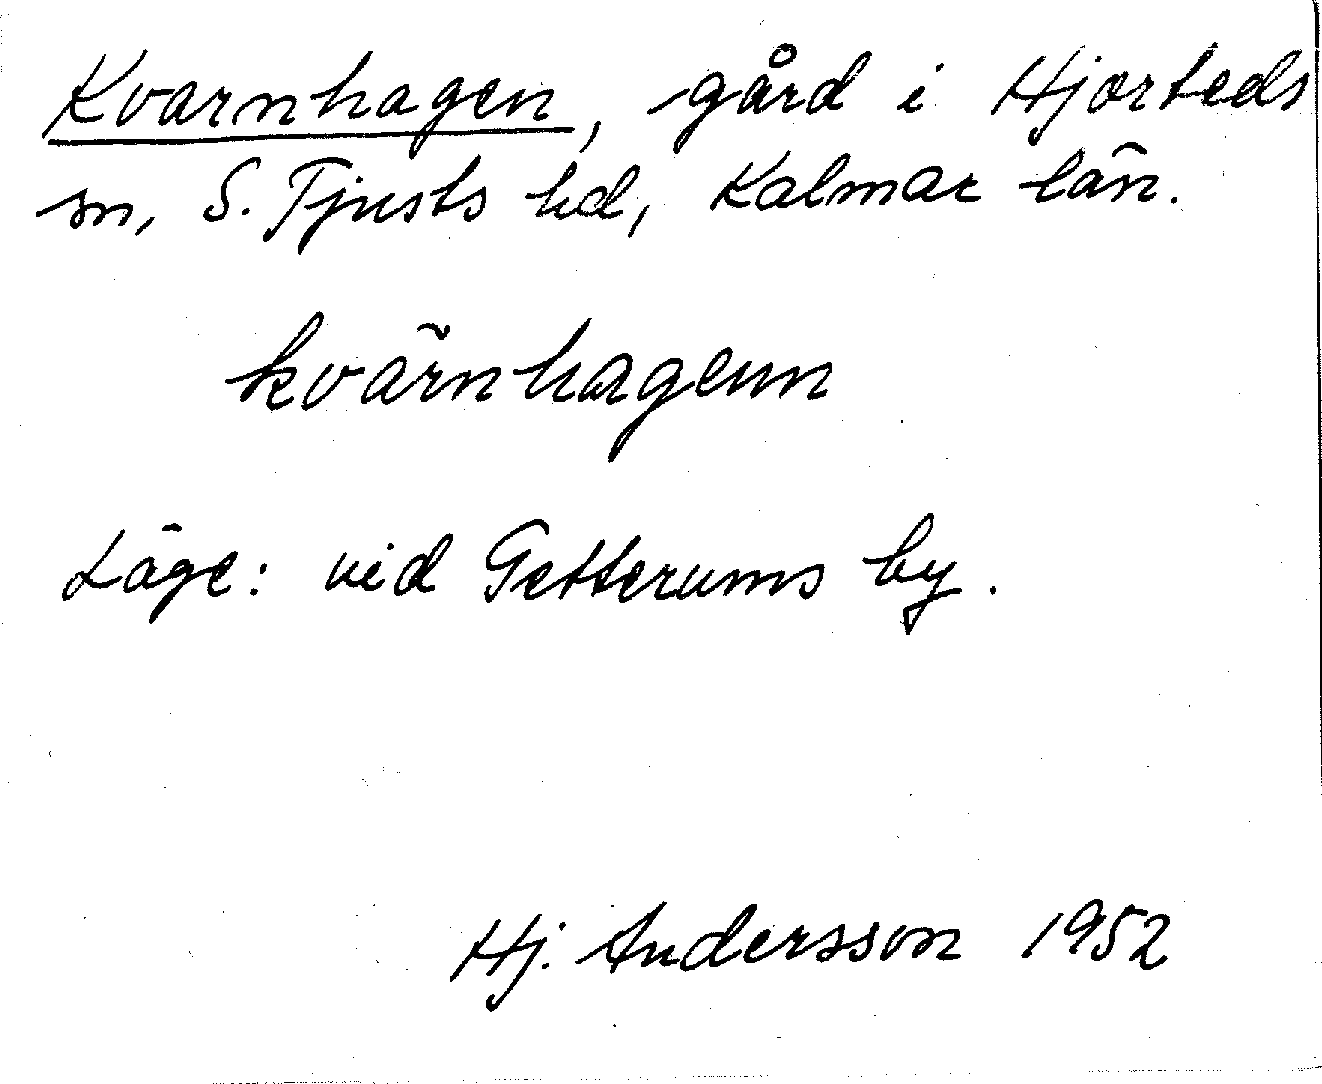 Kvarnhagen, gård i Hjorteds
sn, S. Tjusts hd, Kalmar län.
kvärnhagenn
Läge: vid Getterums by.
Hj. Andersson 1952